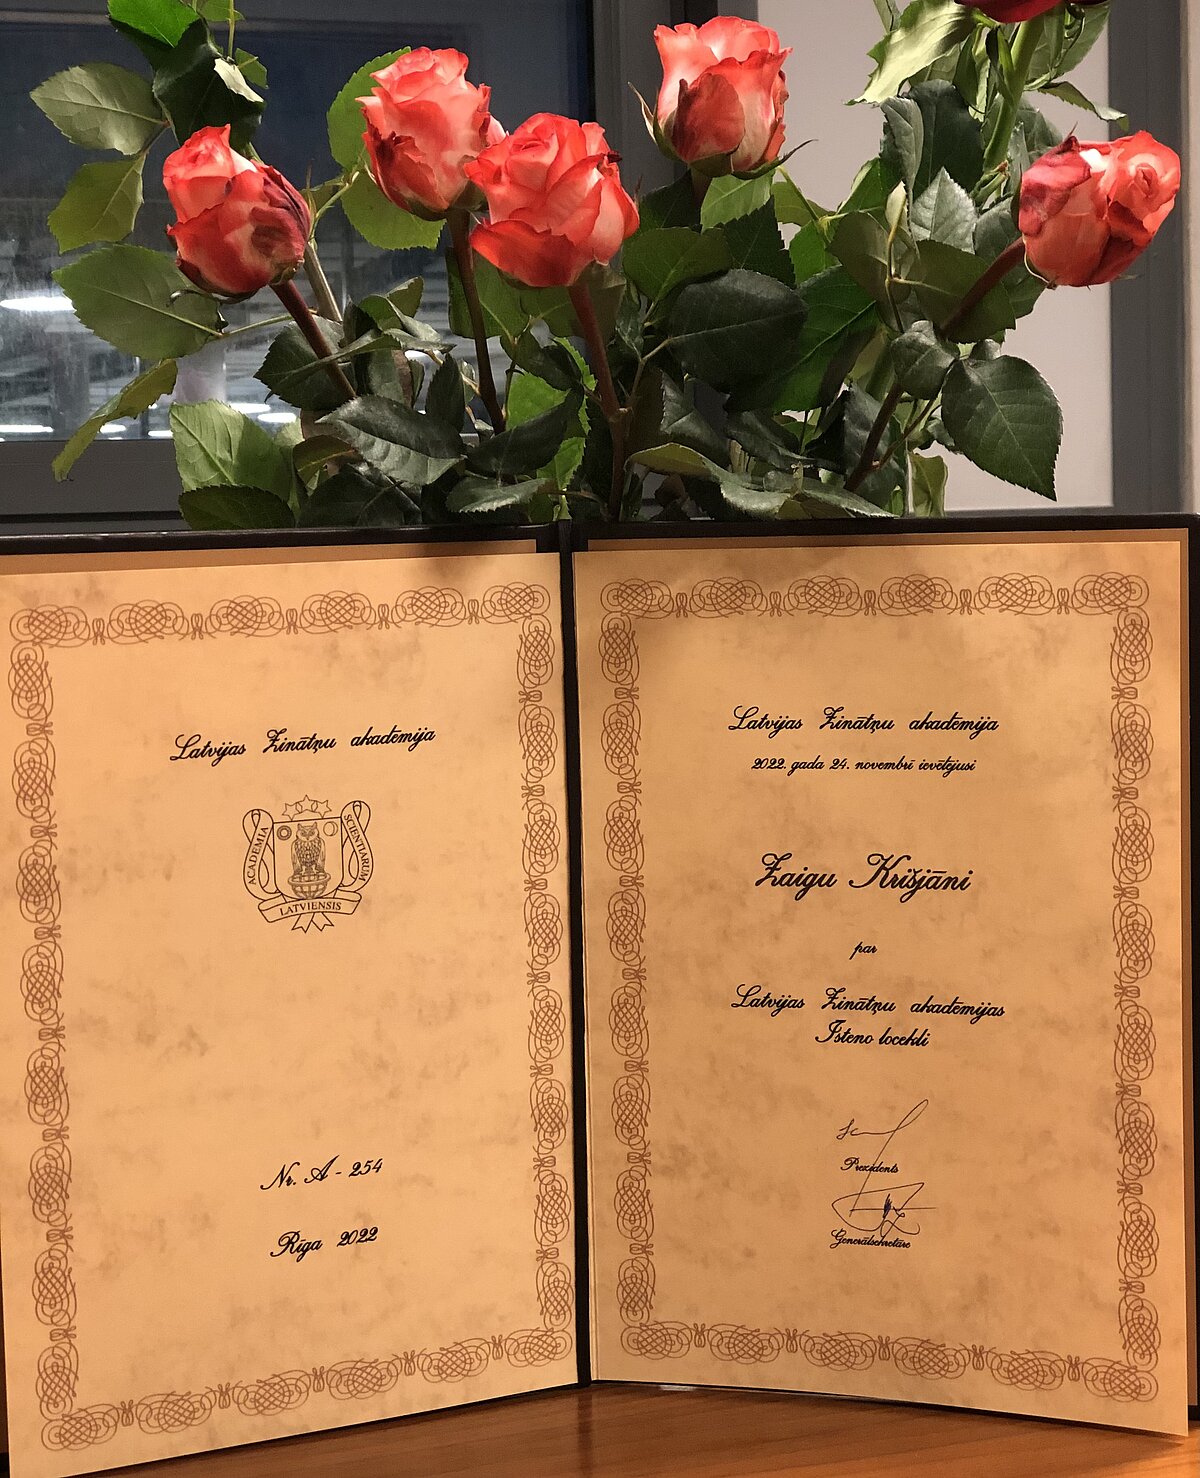 Latvijas Zinātņu akadēmija
ACADEMIA SCIENTIARUM
LATVIENSIS
Nr. A - 254
Rīga 2022
Latvijas Zinātņu akadēmija
2022. gada 24. novembrī ievēlējusi
Zaigu Krišjāni
par
Latvijas Zinātņu akadēmijas
Īsteno locekli
Prezidents
Ģenerālsekretāre